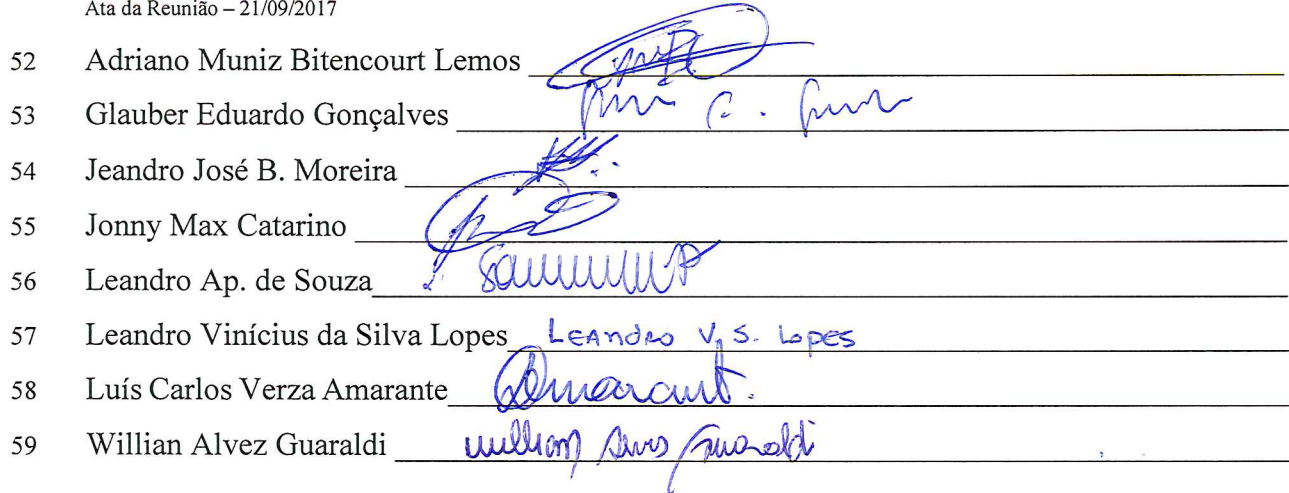 Ata da Reunião – 21/09/2017
52 Adriano Muniz Bitencourt Lemos
53 Glauber Eduardo Gonçalves
54 Jeandro José B. Moreira
55 Jonny Max Catarino
56 Leandro Ap. de Souza
57 Leandro Vinícius da Silva Lopes Leandro V. S. Lopes
58 Luís Carlos Verza Amarante
59 Willian Alvez Guaraldi